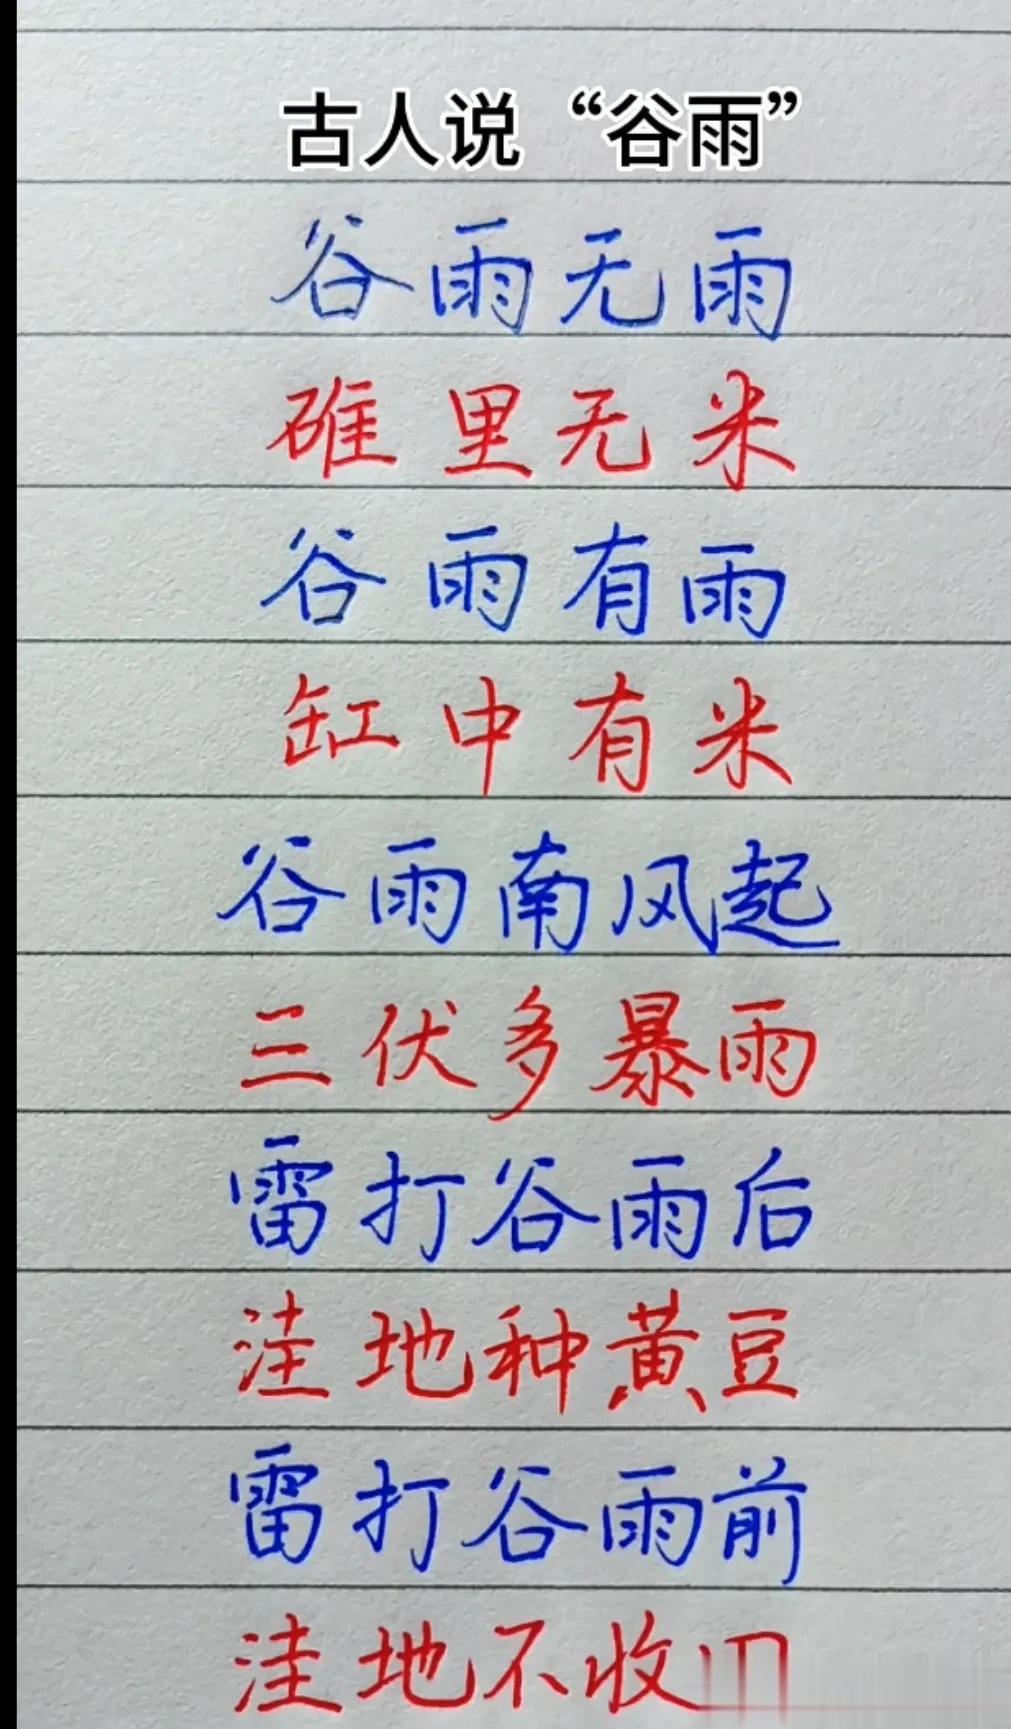 古人说“谷雨”
谷雨无雨
碓里无米
谷雨有雨
缸中有米
谷雨南风起
三伏多暴雨
雷打谷雨后
洼地种黄豆
雷打谷雨前
洼地不收